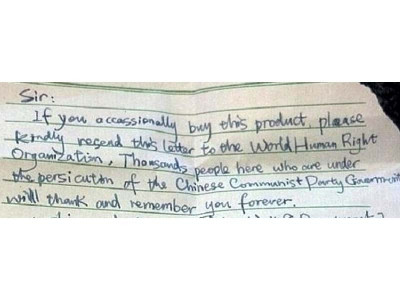 Sir:
If you occassionally buy this product, please
kindly resend this letter to the World Human Right
Organization. Thousands people here who are under
the persicution of the Chinese Communist Party Government
will thank and remember you forever.